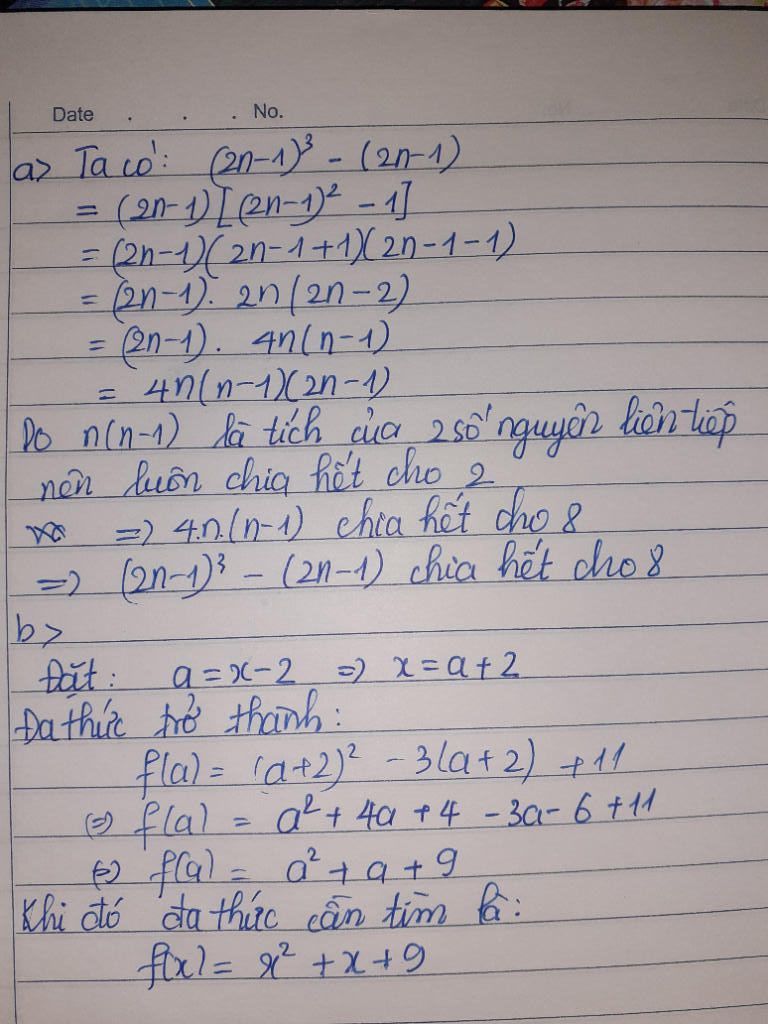 Date . . . No.
a> Ta có: (2n-1)³ - (2n-1)
= (2n-1)[(2n-1)² - 1]
= (2n-1)(2n-1+1)(2n-1-1)
= (2n-1). 2n(2n-2)
= (2n-1). 4n(n-1)
= 4n(n-1)(2n-1)
Do n(n-1) là tích của 2 số nguyên liên tiếp
nên luôn chia hết cho 2
=> 4.n.(n-1) chia hết cho 8
=> (2n-1)³ - (2n-1) chia hết cho 8
b>
Đặt: a = x-2 => x = a+2
Đa thức trở thành:
f(a) = (a+2)² - 3(a+2) + 11
(=) f(a) = a² + 4a + 4 - 3a - 6 + 11
(=) f(a) = a² + a + 9
Khi đó đa thức cần tìm là:
f(x) = x² + x + 9